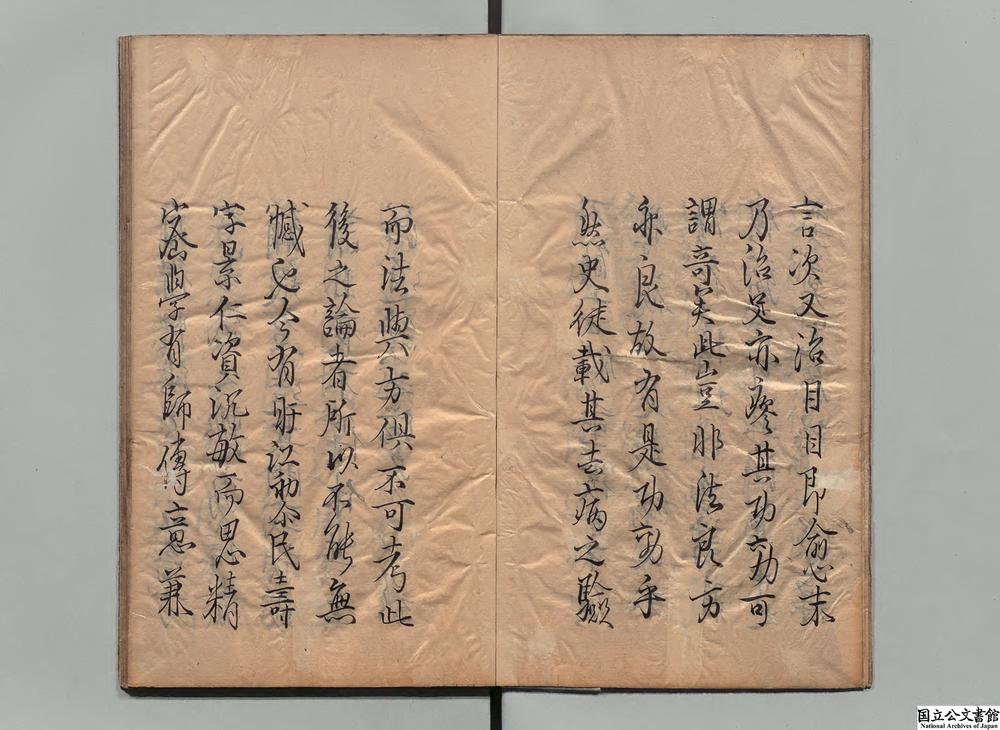 言次又治目目即愈末
乃治足亦瘳其功効可
謂奇矣此豈非法良方
亦良故有是功効乎
然史徒載其去病之驗
而法與方俱不可考此
後之論者所以不能無
憾也今有旴江和介民壽
字景仁資沉敏而思精
密學有師傳意兼
国立公文書館
National Archives of Japan